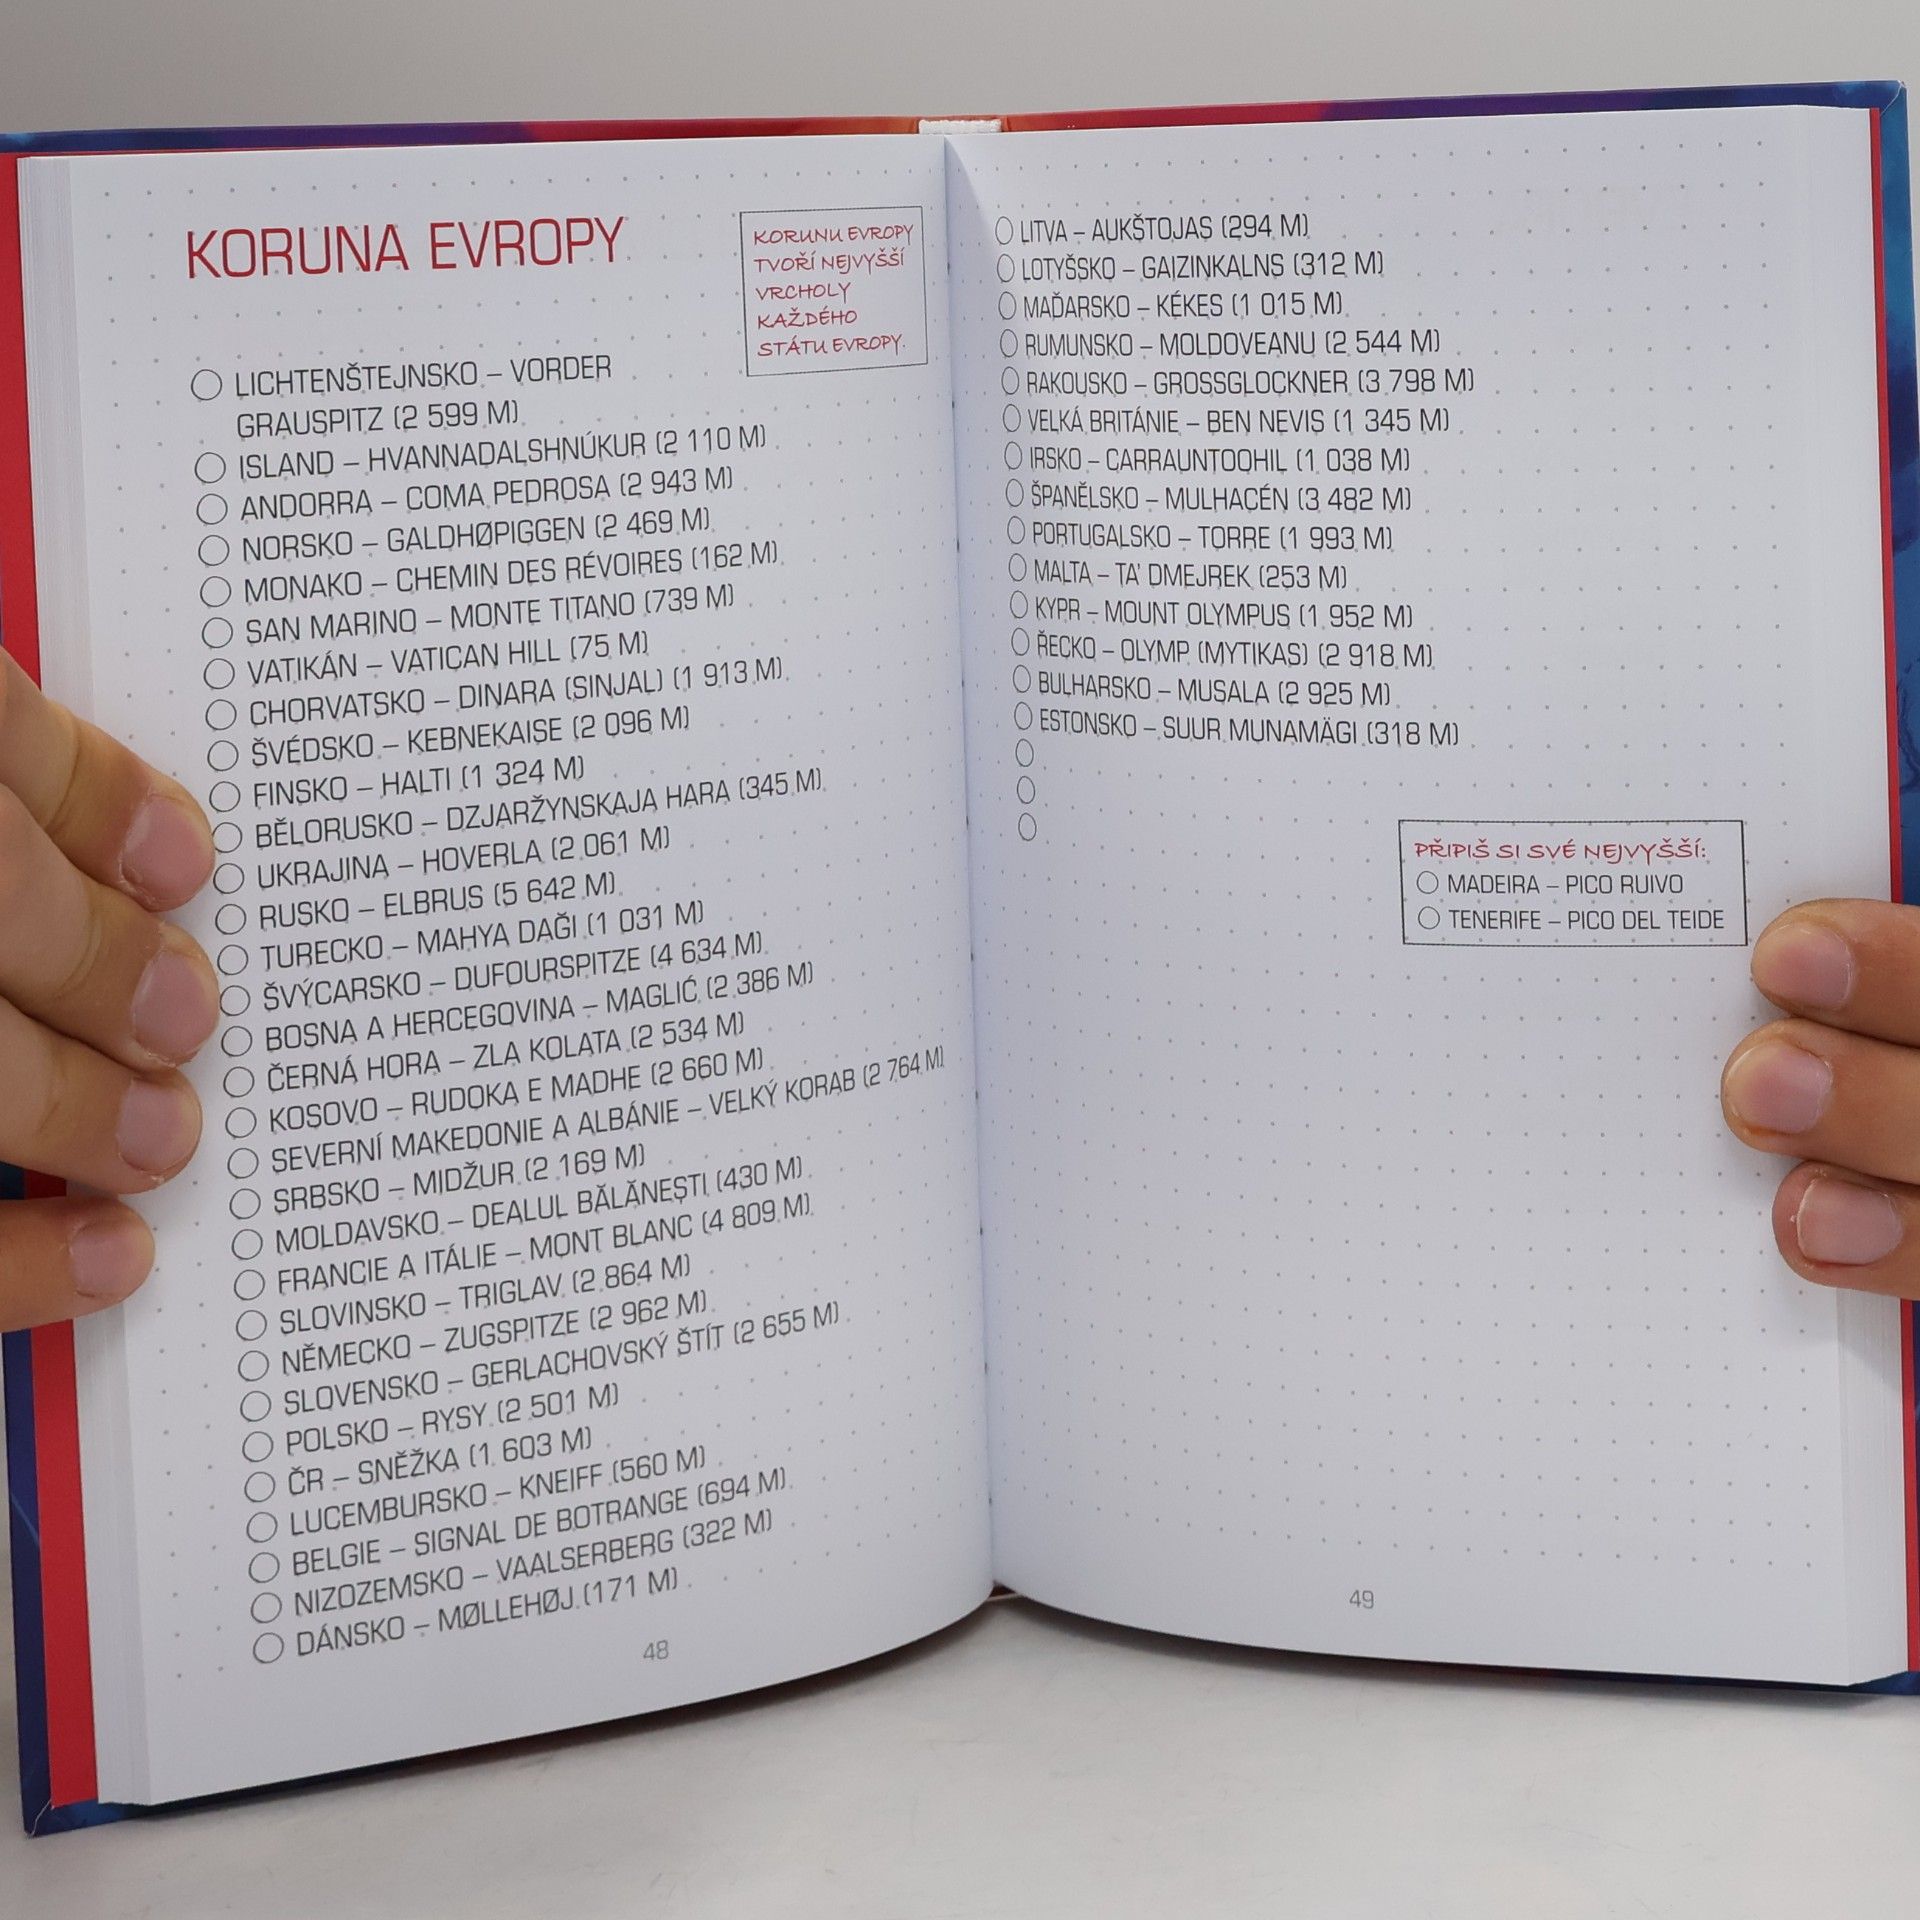 KORUNA EVROPY
KORUNU EVROPY
TVOŘÍ NEJVYŠŠÍ
VRCHOLY
KAŽDÉHO
STÁTU EVROPY.
LICHTENŠTEJNSKO – VORDER
GRAUSPITZ (2 599 M)
ISLAND – HVANNADALSHNÚKUR (2 110 M)
ANDORRA – COMA PEDROSA (2 943 M)
NORSKO – GALDHØPIGGEN (2 469 M)
MONAKO – CHEMIN DES RÉVOIRES (162 M)
SAN MARINO – MONTE TITANO (739 M)
VATIKÁN – VATICAN HILL (75 M)
CHORVATSKO – DINARA (SINJAL) (1 913 M)
ŠVÉDSKO – KEBNEKAISE (2 096 M)
FINSKO – HALTI (1 324 M)
BĚLORUSKO – DZJARŽYNSKAJA HARA (345 M)
UKRAJINA – HOVERLA (2 061 M)
RUSKO – ELBRUS (5 642 M)
TURECKO – MAHYA DAĞI (1 031 M)
ŠVÝCARSKO – DUFOURSPITZE (4 634 M)
BOSNA A HERCEGOVINA – MAGLIĆ (2 386 M)
ČERNÁ HORA – ZLA KOLATA (2 534 M)
KOSOVO – RUDOKA E MADHE (2 660 M)
SEVERNÍ MAKEDONIE A ALBÁNIE – VELKÝ KORAB (2 764 M)
SRBSKO – MIDŽUR (2 169 M)
MOLDAVSKO – DEALUL BĂLĂNEȘTI (430 M)
FRANCIE A ITÁLIE – MONT BLANC (4 809 M)
SLOVINSKO – TRIGLAV (2 864 M)
NĚMECKO – ZUGSPITZE (2 962 M)
SLOVENSKO – GERLACHOVSKÝ ŠTÍT (2 655 M)
POLSKO – RYSY (2 501 M)
ČR – SNĚŽKA (1 603 M)
LUCEMBURSKO – KNEIFF (560 M)
BELGIE – SIGNAL DE BOTRANGE (694 M)
NIZOZEMSKO – VAALSERBERG (322 M)
DÁNSKO – MØLLEHØJ (171 M)
48
LITVA – AUKŠTOJAS (294 M)
LOTYŠSKO – GAIZINKALNS (312 M)
MAĎARSKO – KÉKES (1 015 M)
RUMUNSKO – MOLDOVEANU (2 544 M)
RAKOUSKO – GROSSGLOCKNER (3 798 M)
VELKÁ BRITÁNIE – BEN NEVIS (1 345 M)
IRSKO – CARRAUNTOOHIL (1 038 M)
ŠPANĚLSKO – MULHACÉN (3 482 M)
PORTUGALSKO – TORRE (1 993 M)
MALTA – TA' DMEJREK (253 M)
KYPR – MOUNT OLYMPUS (1 952 M)
ŘECKO – OLYMP (MYTIKAS) (2 918 M)
BULHARSKO – MUSALA (2 925 M)
ESTONSKO – SUUR MUNAMÄGI (318 M)
PŘIPIŠ SI SVÉ NEJVYŠŠÍ:
MADEIRA – PICO RUIVO
TENERIFE – PICO DEL TEIDE
49